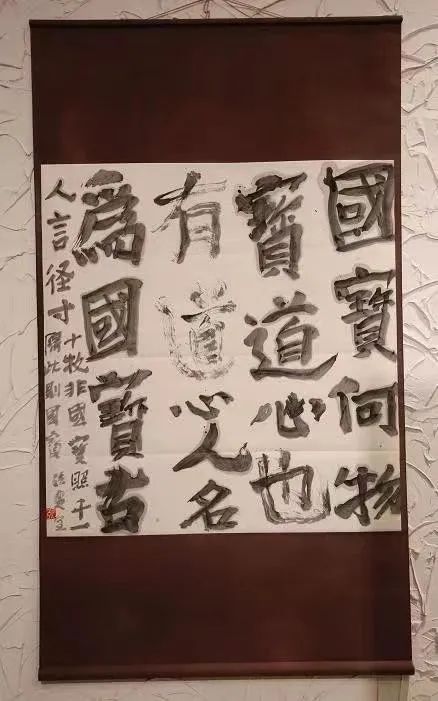 國寶何物
寶道心也
有道心人名
為國寶古
人言径寸
十枚非國寶照于一
隅此則國寶